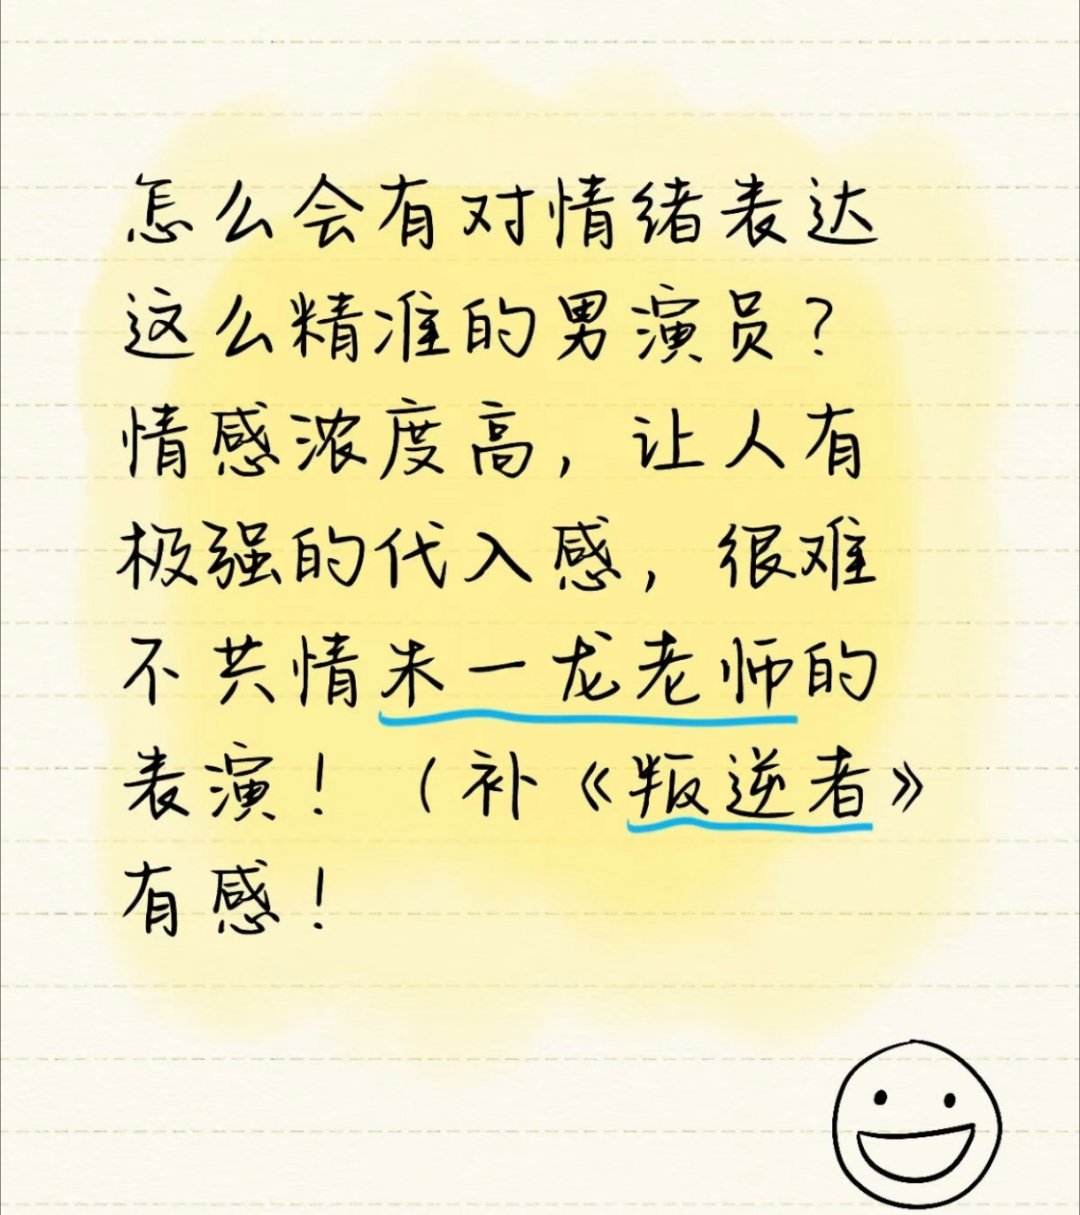 怎么会有对情绪表达
这么精准的男演员？
情感浓度高，让人有
极强的代入感，很难
不共情朱一龙老师的
表演！（补《叛逆者》
有感！